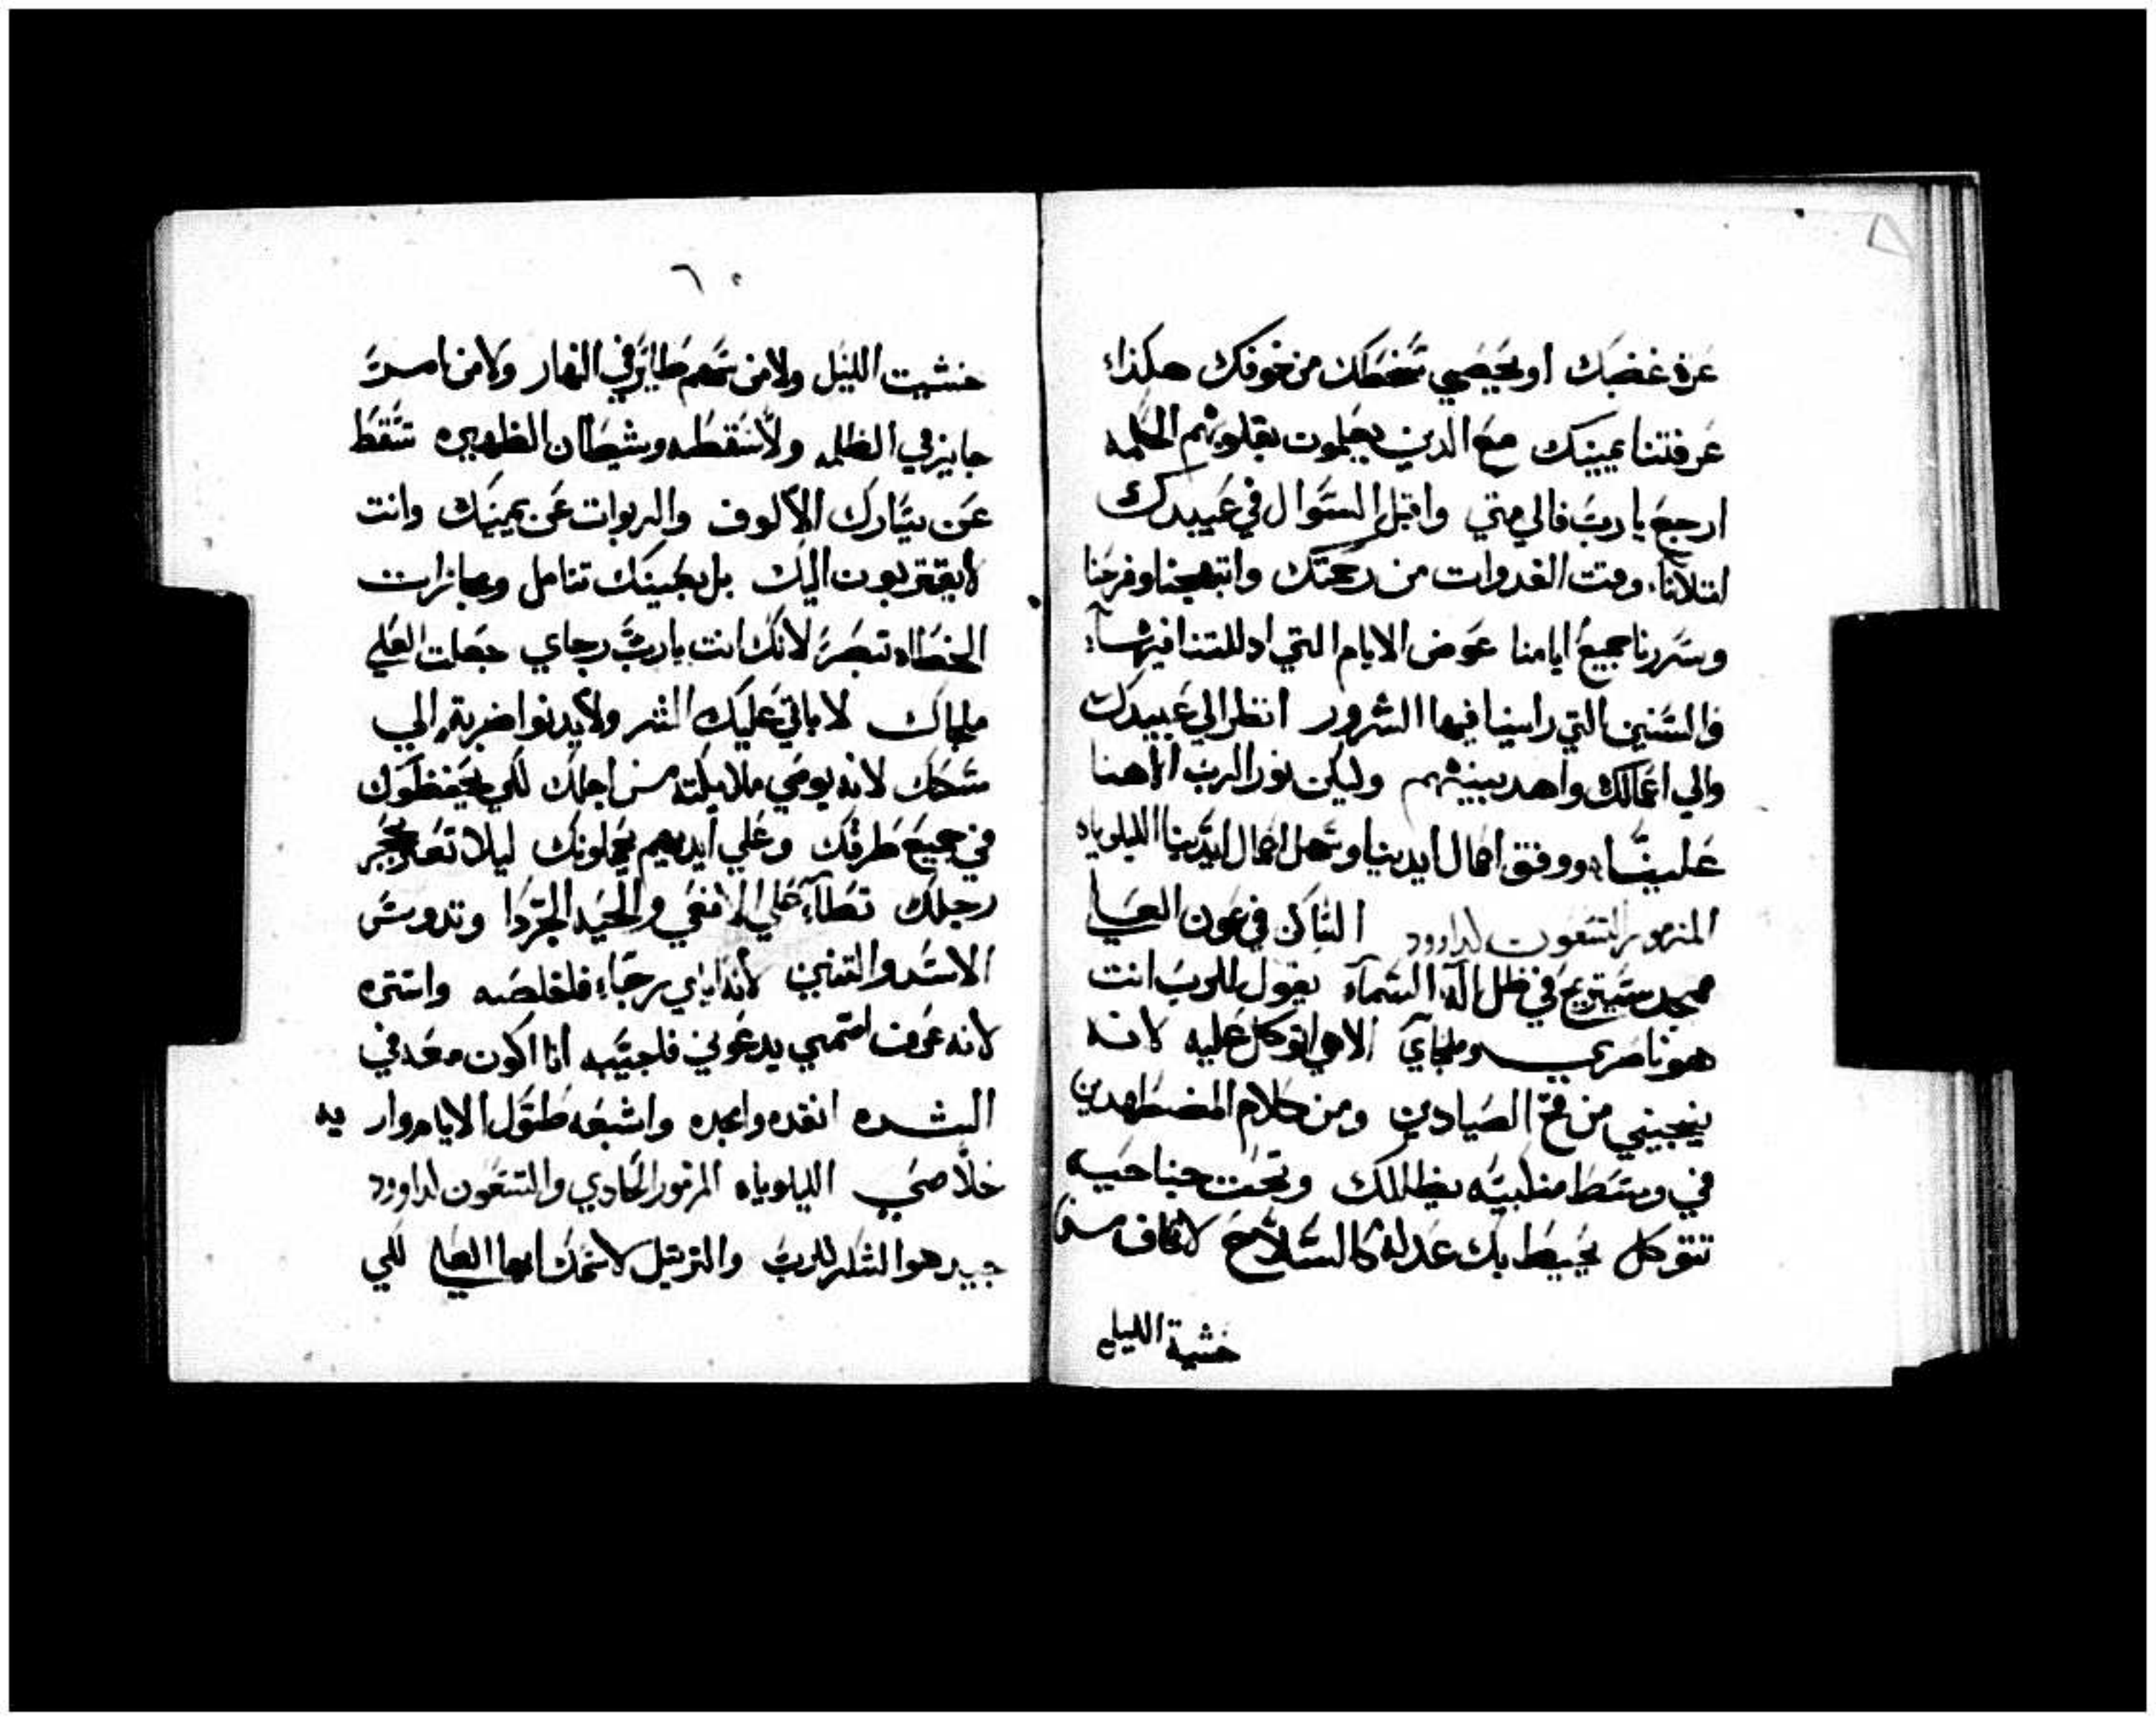 عزة غضبك او يحصي سخطك من خوفك هكذا
عرفتنا يمينك مع الدين يعلمون بقلوبهم الحكمه
ارجع يارب فالي متي واقبل السوال في عبيدك
امتلانا وقت الغدوات من رحمتك وابتهجنا وفرحنا
وسررنا جميع ايامنا عوض الايام التي ادللتنا فيها
والسنين التي راينا فيها الشرور انظر الي عبيدك
والي اعمالك واهد بنيهم وليكن نور الرب الاهنا
علينا ووفق اعمال ايدينا وسهل اعمال ايدينا الليلوياه
المزمور التسعون لداوود الساكن في عون العلي
سيستريح في ظل اله السماء يقول للرب انت
هو ناصري وملجاي الاهي اتوكل عليه لانه
ينجيني من فخ الصيادين ومن كلام المضطهدين
في وسط منكبيه يظللك وتحت جناحيه
تتوكل يحيط بك عدله كالسلاح لاتخاف من
خشية الليل
٦٠
خشيت الليل ولا من سهم طاير في النهار ولا من امر
جايز في الظلمه ولا سقطه وشيطان الظهيره تسقط
عن يسارك الالوف والربوات عن يمينك وانت
لايقتربون اليك بل بعينك تتامل ومجازات
الخطاه تبصر لانك انت يارب رجاي جعلت العلي
ملجاك لاياتي عليك الشر ولا يدنوا ضربة الي
مسكنك لانه يوصي ملايكته من اجلك لكي يحفظوك
في جميع طرقك وعلي ايديهم يحملونك ليلا تعتر بحجر
رجلك تطاء علي الافعي والحيه الجردا وتدوس
الاسد والتنين لانه اياي رجاء فاخلصه واستره
لانه عرف اسمي يدعوني فاجيبه انا اكون معه في
الشده انقده وامجده واشبعه طول الايام وار يه
خلاصي الليلوياه المزمور الحادي والتسعون لداوود
جيد هو الشكر للرب والترتيل لاسمك ايها العلي لكي